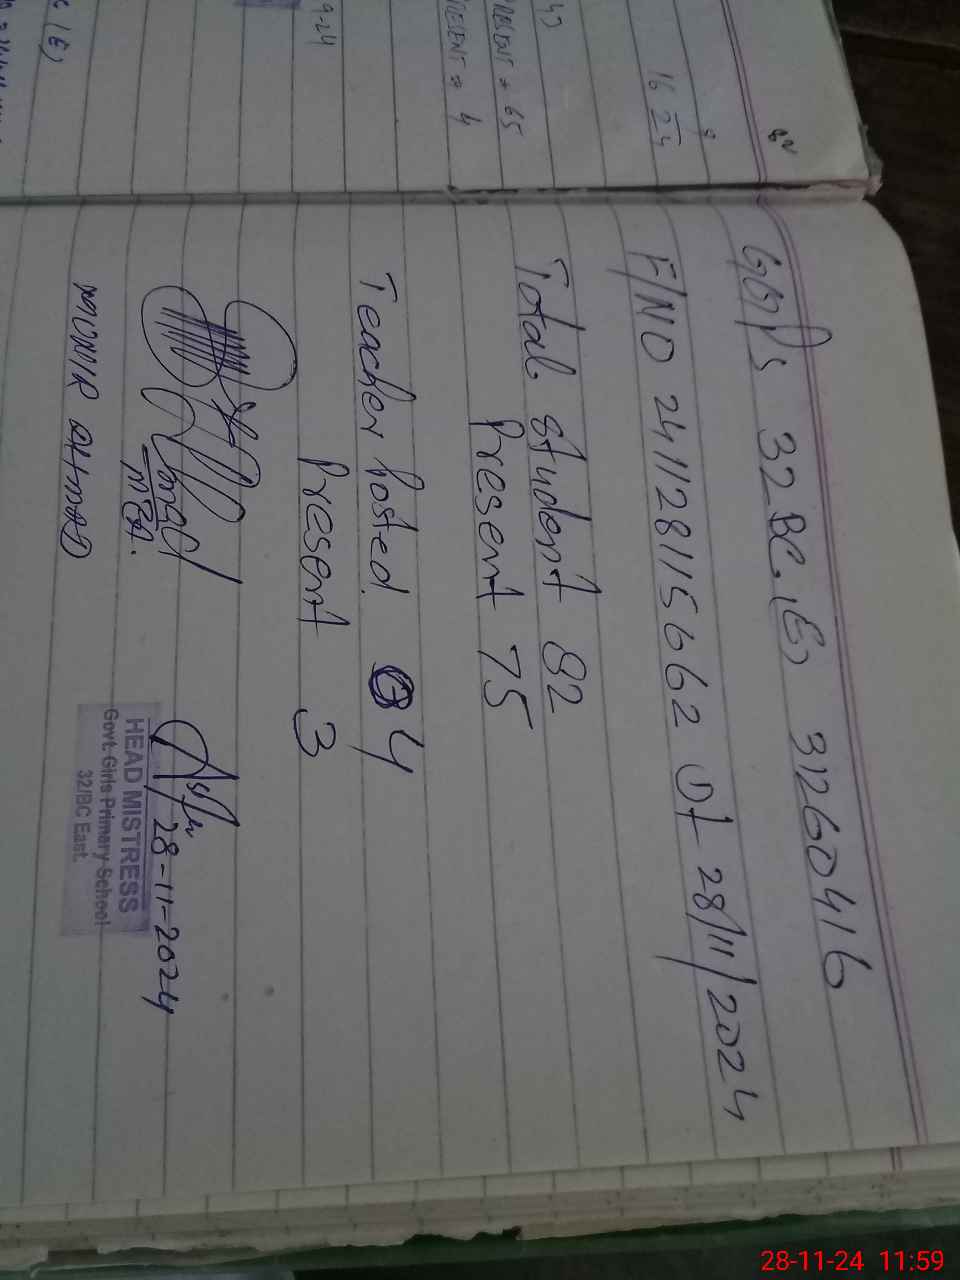 GGPS 32 BC.(E) 31260416
F/NO 241128115662 Dt 28/11/2024
Total student 82
Present 75
Teacher Posted 04
Present 3
MEA.
MUNIR AHMAD
28-11-2024
HEAD MISTRESS
Govt. Girls Primary School
32/BC East.
16 24
PRESENT → 65
4
9-24
(E)
28-11-24 11:59